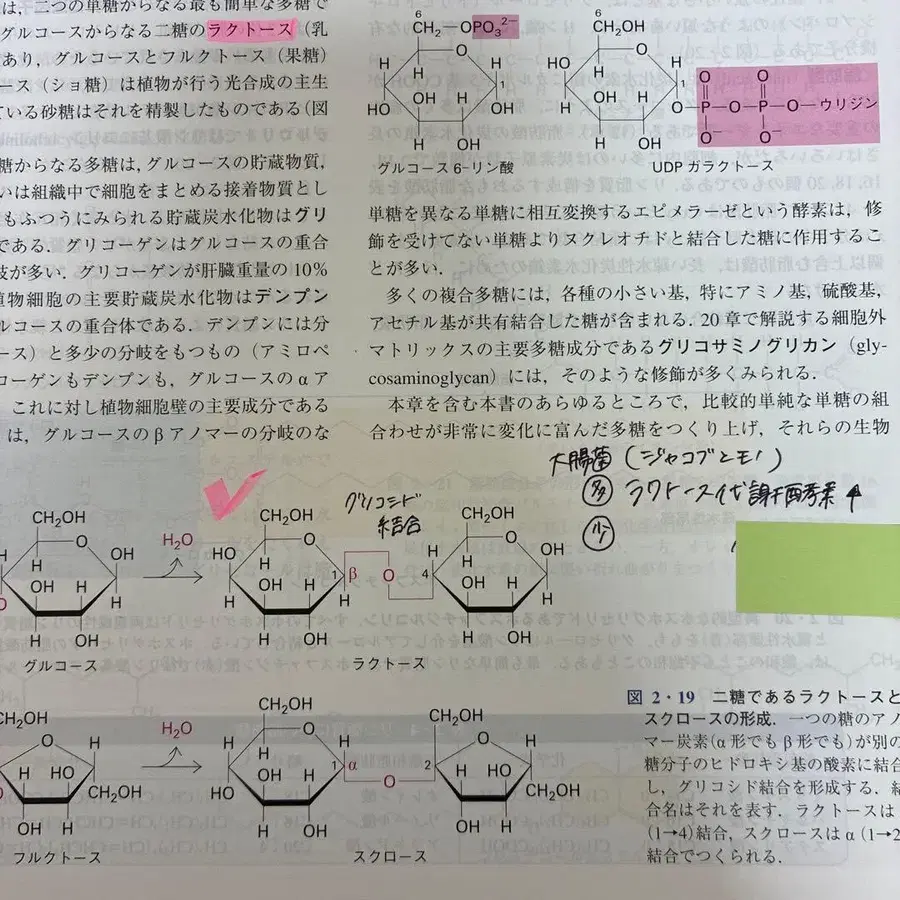 は，二つの単糖からなる最も簡単な多糖で
グルコースからなる二糖のラクトース（乳
あり，グルコースとフルクトース（果糖）
ース（ショ糖）は植物が行う光合成の主生
ている砂糖はそれを精製したものである（図
糖からなる多糖は，グルコースの貯蔵物質，
いは組織中で細胞をまとめる接着物質とし
もふつうにみられる貯蔵炭水化物はグリ
である．グリコーゲンはグルコースの重合
枝が多い．グリコーゲンが肝臓重量の10%
植物細胞の主要貯蔵炭水化物はデンプン
ルコースの重合体である．デンプンには分
ース）と多少の分岐をもつもの（アミロペ
コーゲンもデンプンも，グルコースのαア
これに対し植物細胞壁の主要成分である
は，グルコースのβアノマーの分岐のな
6
CH₂—OPO₃²⁻
H O H
H
1
OH H
HO OH
H OH
グルコース 6-リン酸
6
CH₂OH
HO O H
H
1
OH H
H O—P—O—P—O—ウリジン
O O
O⁻ O⁻
H OH
UDP ガラクトース
単糖を異なる単糖に相互変換するエピメラーゼという酵素は，修
飾を受けてない単糖よりヌクレオチドと結合した糖に作用するこ
とが多い．
多くの複合多糖には，各種の小さい基，特にアミノ基，硫酸基，
アセチル基が共有結合した糖が含まれる．20章で解説する細胞外
マトリックスの主要多糖成分であるグリコサミノグリカン（gly-
cosaminoglycan）には，そのような修飾が多くみられる．
本章を含む本書のあらゆるところで，比較的単純な単糖の組
合わせが非常に変化に富んだ多糖をつくり上げ，それらの生物
大腸菌（ジャコブとモノ）
多 ラクトース代謝酵素↑
少
グリコシド
結合
CH₂OH
O OH
H
OH H
H
H OH
グルコース
H₂O
CH₂OH
HO O H
H
OH H
H 1 β
H OH
O
CH₂OH
O OH
H
4 OH H
H
H OH
ラクトース
CH₂OH
O H
H HO
CH₂OH
OH H
フルクトース
H₂O
CH₂OH
H O H
H
OH H 1 α
HO
H OH
O
CH₂OH
O H
2 H HO
CH₂OH
OH H
スクロース
図 2・19 二糖であるラクトースと
スクロースの形成．一つの糖のアノ
マー炭素(α形でもβ形でも)が別の
糖分子のヒドロキシ基の酸素に結合
し，グリコシド結合を形成する．結
合名はそれを表す．ラクトースは
(1→4)結合，スクロースはα(1→2
結合でつくられる．